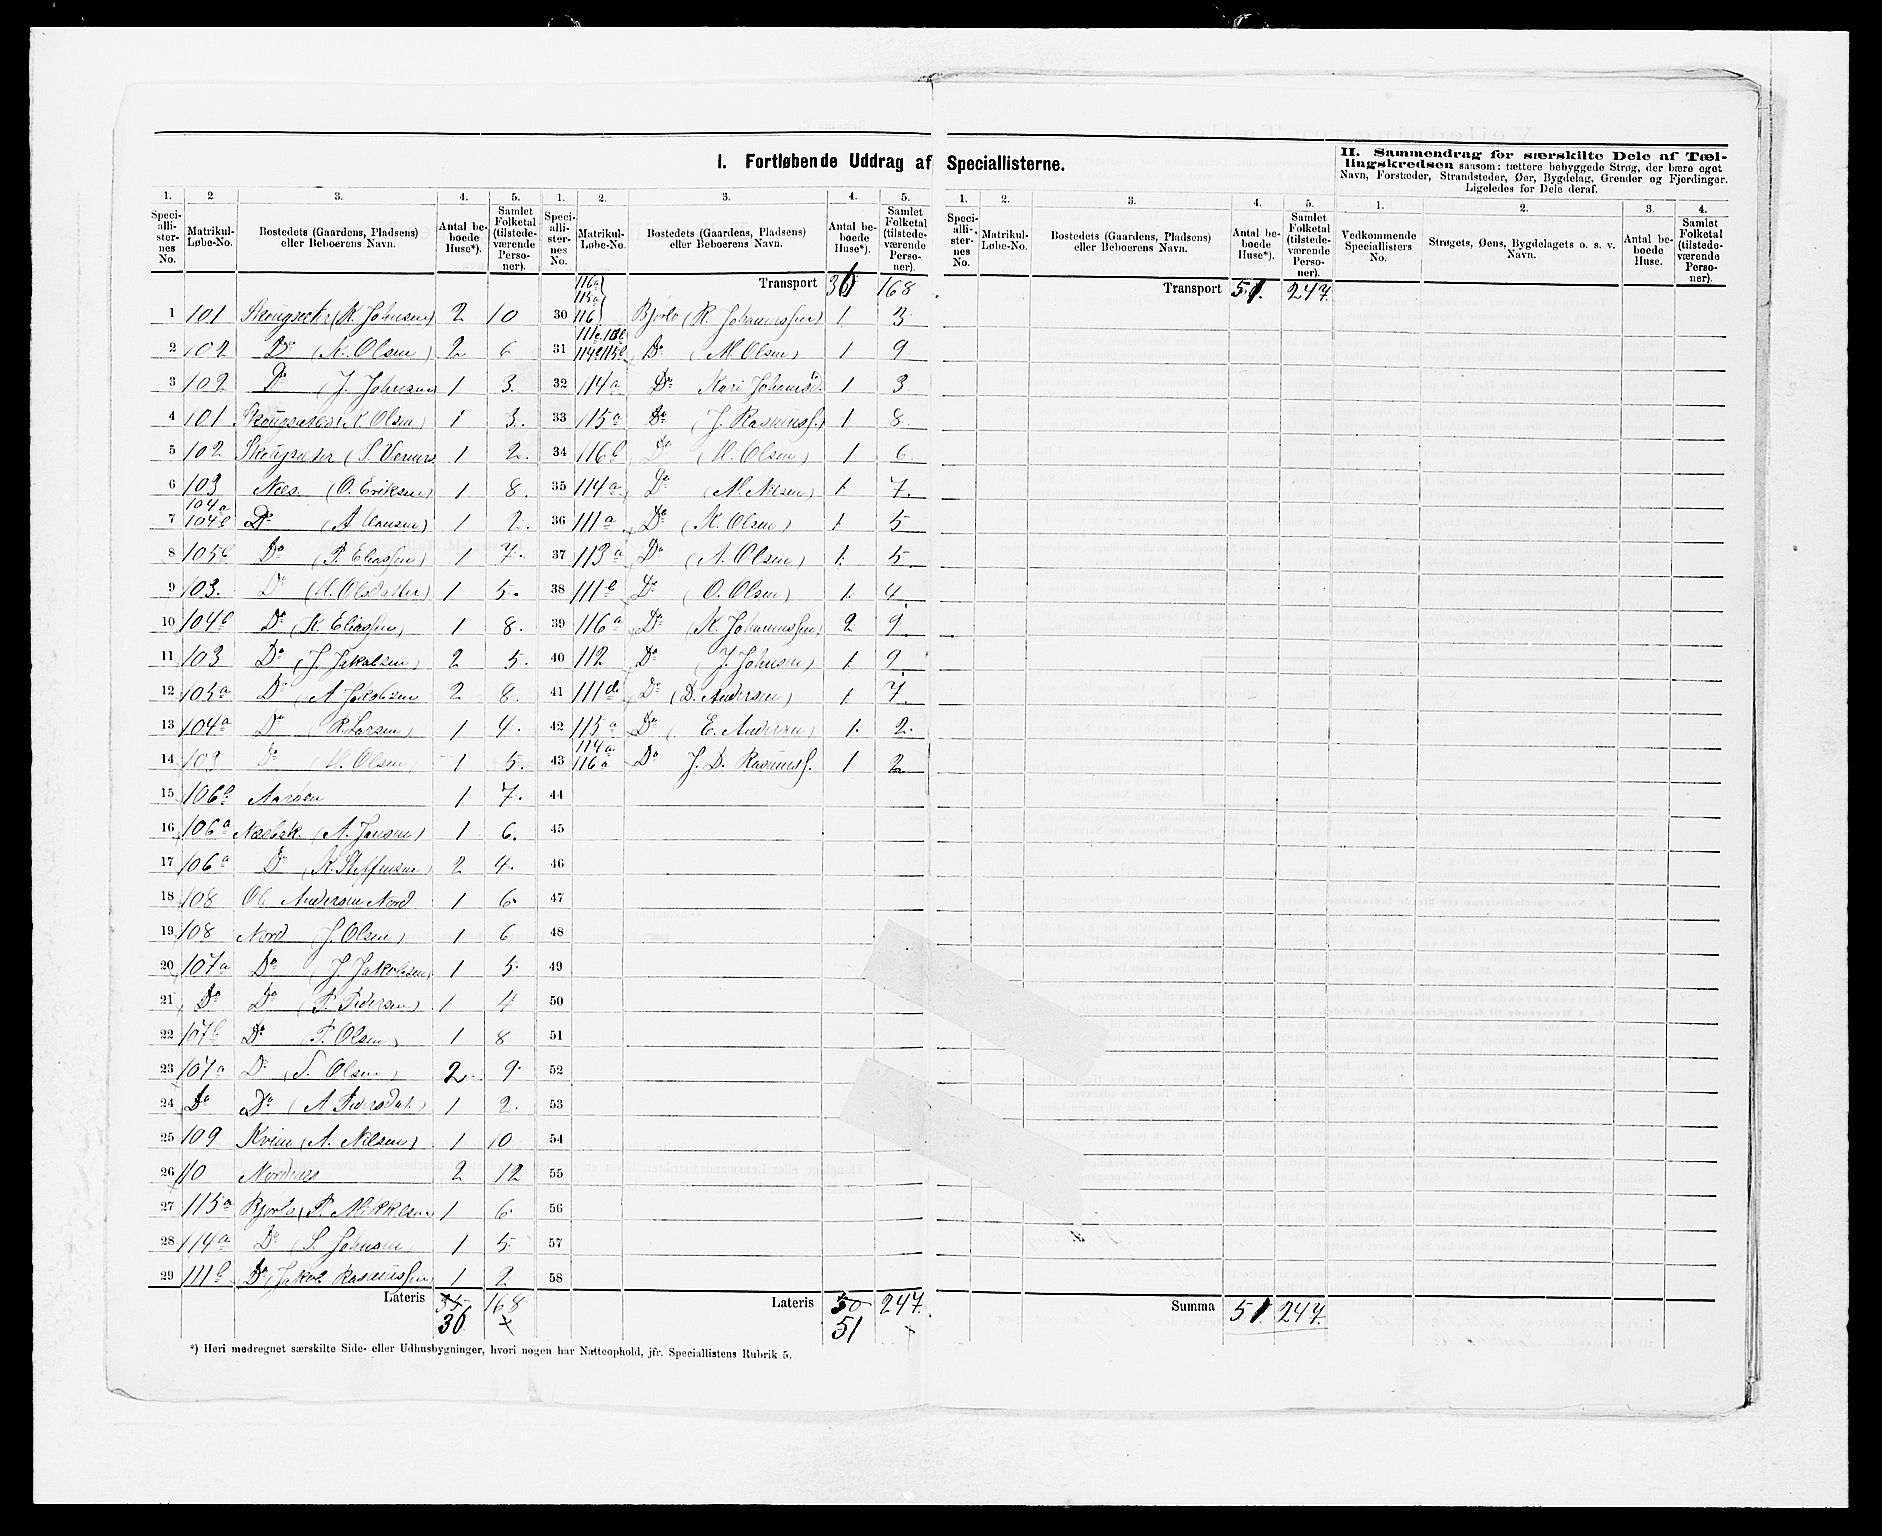 I. Fortløbende Uddrag af Speciallisterne.
II. Sammendrag for særskilte Dele af Tællingskredsen saasom: tættere bebyggede Strøg, der bære eget Navn, Forstæder, Strandsteder, Øer, Bygdelag, Grender og Fjerdinger. Ligeledes for Dele deraf.
1. 2 3. 4. 5. 1. 2. 3. 4. 5. 1. 2. 3. 4. 5. 1. 2. 3. 4.
Speciallisternes No. Matrikul-Løbe-No. Bostedets (Gaardens, Pladsens) eller Beboerens Navn. Antal beboede Huse*). Samlet Folketal (tilstedeværende Personer).
Speciallisternes No. Matrikul-Løbe-No. Bostedets (Gaardens, Pladsens) eller Beboerens Navn. Antal beboede Huse*). Samlet Folketal (tilstedeværende Personer).
Speciallisternes No. Matrikul-Løbe-No. Bostedets (Gaardens, Pladsens) eller Beboerens Navn. Antal beboede Huse*). Samlet Folketal (tilstedeværende Personer).
Vedkommende Speciallisters No. Strøgets, Øens, Bygdelagets o. s. v. Navn. Antal beboede Huse. Samlet Folketal (tilstedeværende Personer).
1 101 (K. Johnsen) 2 10
2 102 Do (K. Olsen) 2 6
3 102 Do (J. Johnsen 1 3.
4 101 (K. Olsen) 1 3.
5 102 1 2.
6 103 Næs. (O. Eriksen) 1 8.
7 104a 104b Do (A. Hansen) 1 2.
8 105b Do (P. Eliassen) 1 7.
9 103. Do (M. Olsdatter) 1 5.
10 104b Do (K. Eliassen) 1 8.
11 103 Do (J. Jakobsen) 2 5.
12 105a Do (A. Jakobsen 2 8.
13 104a Do (R. Larsen) 1 4.
14 103 Do Olsen) 1 5.
15 106b Aarøen 1 7.
16 106a (A. Jansen) 1 6.
17 106a Do (K. Steffensen) 2 4.
18 108 Andersen Nord 1 6.
19 108 Nord (J. Olsen) 1 6
20 107a Do (J. Jakobsen) 1 5.
21 Do Do (P. Pedersen) 1 4
22 107b Do P. Olsen) 1 8
23 107a Do (S. Olsen) 2 9.
24 Do Do (A Pedersdat.) 1 2.
25 109 Kvien (A. Nilsen) 1 10
26 110 Nordnes 2 12
27 115a Bjørlo (P. Mikkelsen 1 6.
28 114a Do (S. Johnsen) 1 5.
29 111b Do (Jakob Rasmussen) 1 2
Lateris 35 36 168
Transport 36 168
30 116a 115a 116 Bjørlo (R. Johannessen) 1. 3
31 Do (M. Olsen) 1 9
32 114a Do Kari Johansd. 1 3
33 115a Do (J. Rasmuss.) 1 8
34 116b Do (M. Olsen) 1 6
35 114a Do (M. Nilsen) 1. 7.
36 111a Do (K. Olsen) 1. 5
37 113a Do (A. Olsen) 1. 5.
38 111b Do (O. Olsen) 1. 4
39 116a Do (K. Johannessen) 2 9
40 112 Do (J. Johnsen) 1. 9
41 Do (D. Andersen) 1. 7.
42 115a Do (E. Andersen) 1. 2.
43 114a 116a Do J. D. Rasmuss. 1 2
44
45
46
47
48
49
50
51
52
53
54
55
56
57
58
Lateris 50 51 247.
Transport 51. 247.
Summa 51. 247.
*) Heri medregnet særskilte Side- eller Udhusbygninger, hvori nogen har Natteophold, jfr. Speciallistens Rubrik 5.